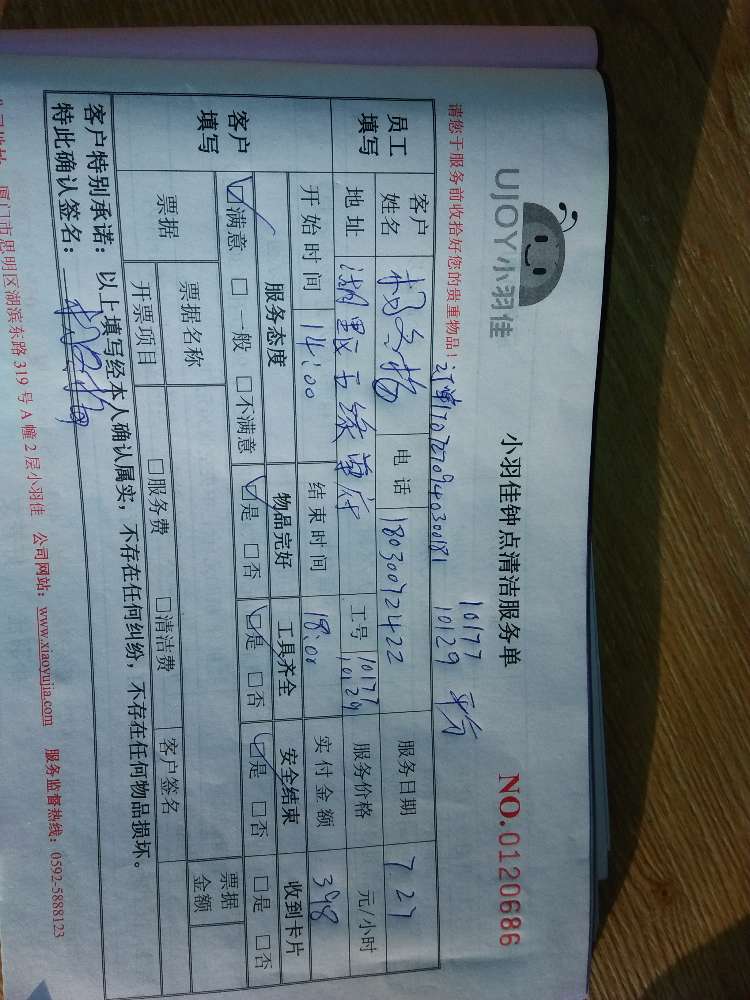 UJOY小羽佳
小羽佳钟点清洁服务单
NO.0120686
10177
10129
请您于服务前收拾好您的贵重物品！
员工填写
客户姓名 电话 18030092422 服务日期 7.27
地址 湖里区 工号 10177 10129 服务价格 元/小时
开始时间 14:00 结束时间 18:00 实付金额 398
客户填写
服务态度 物品完好 工具齐全 安全结束 收到卡片
☑满意 □一般 □不满意 ☑是 □否 ☑是 □否 ☑是 □否 □是 □否
票据 票据名称 票据金额
开票项目 □服务费 □清洁费 客户签名
客户特别承诺：以上填写经本人确认属实，不存在任何纠纷，不存在任何物品损坏。
特此确认签名：
厦门市思明区湖滨东路319号A幢2层小羽佳 公司网站：www.xiaoyujia.com 服务监督热线：0592-5888123